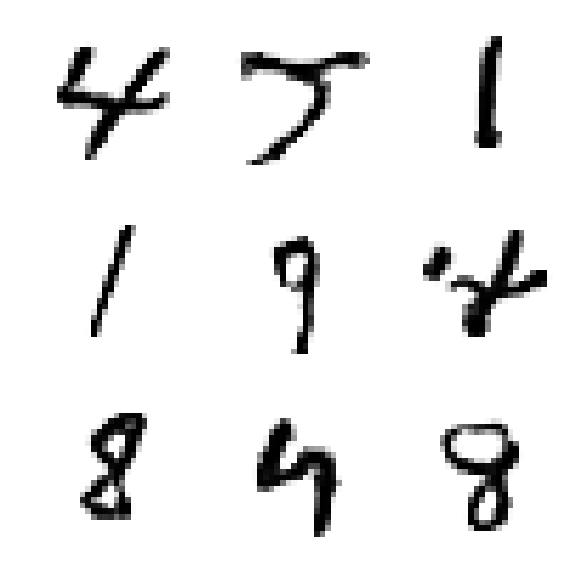 4 5 1
1 9 4
8 9 8